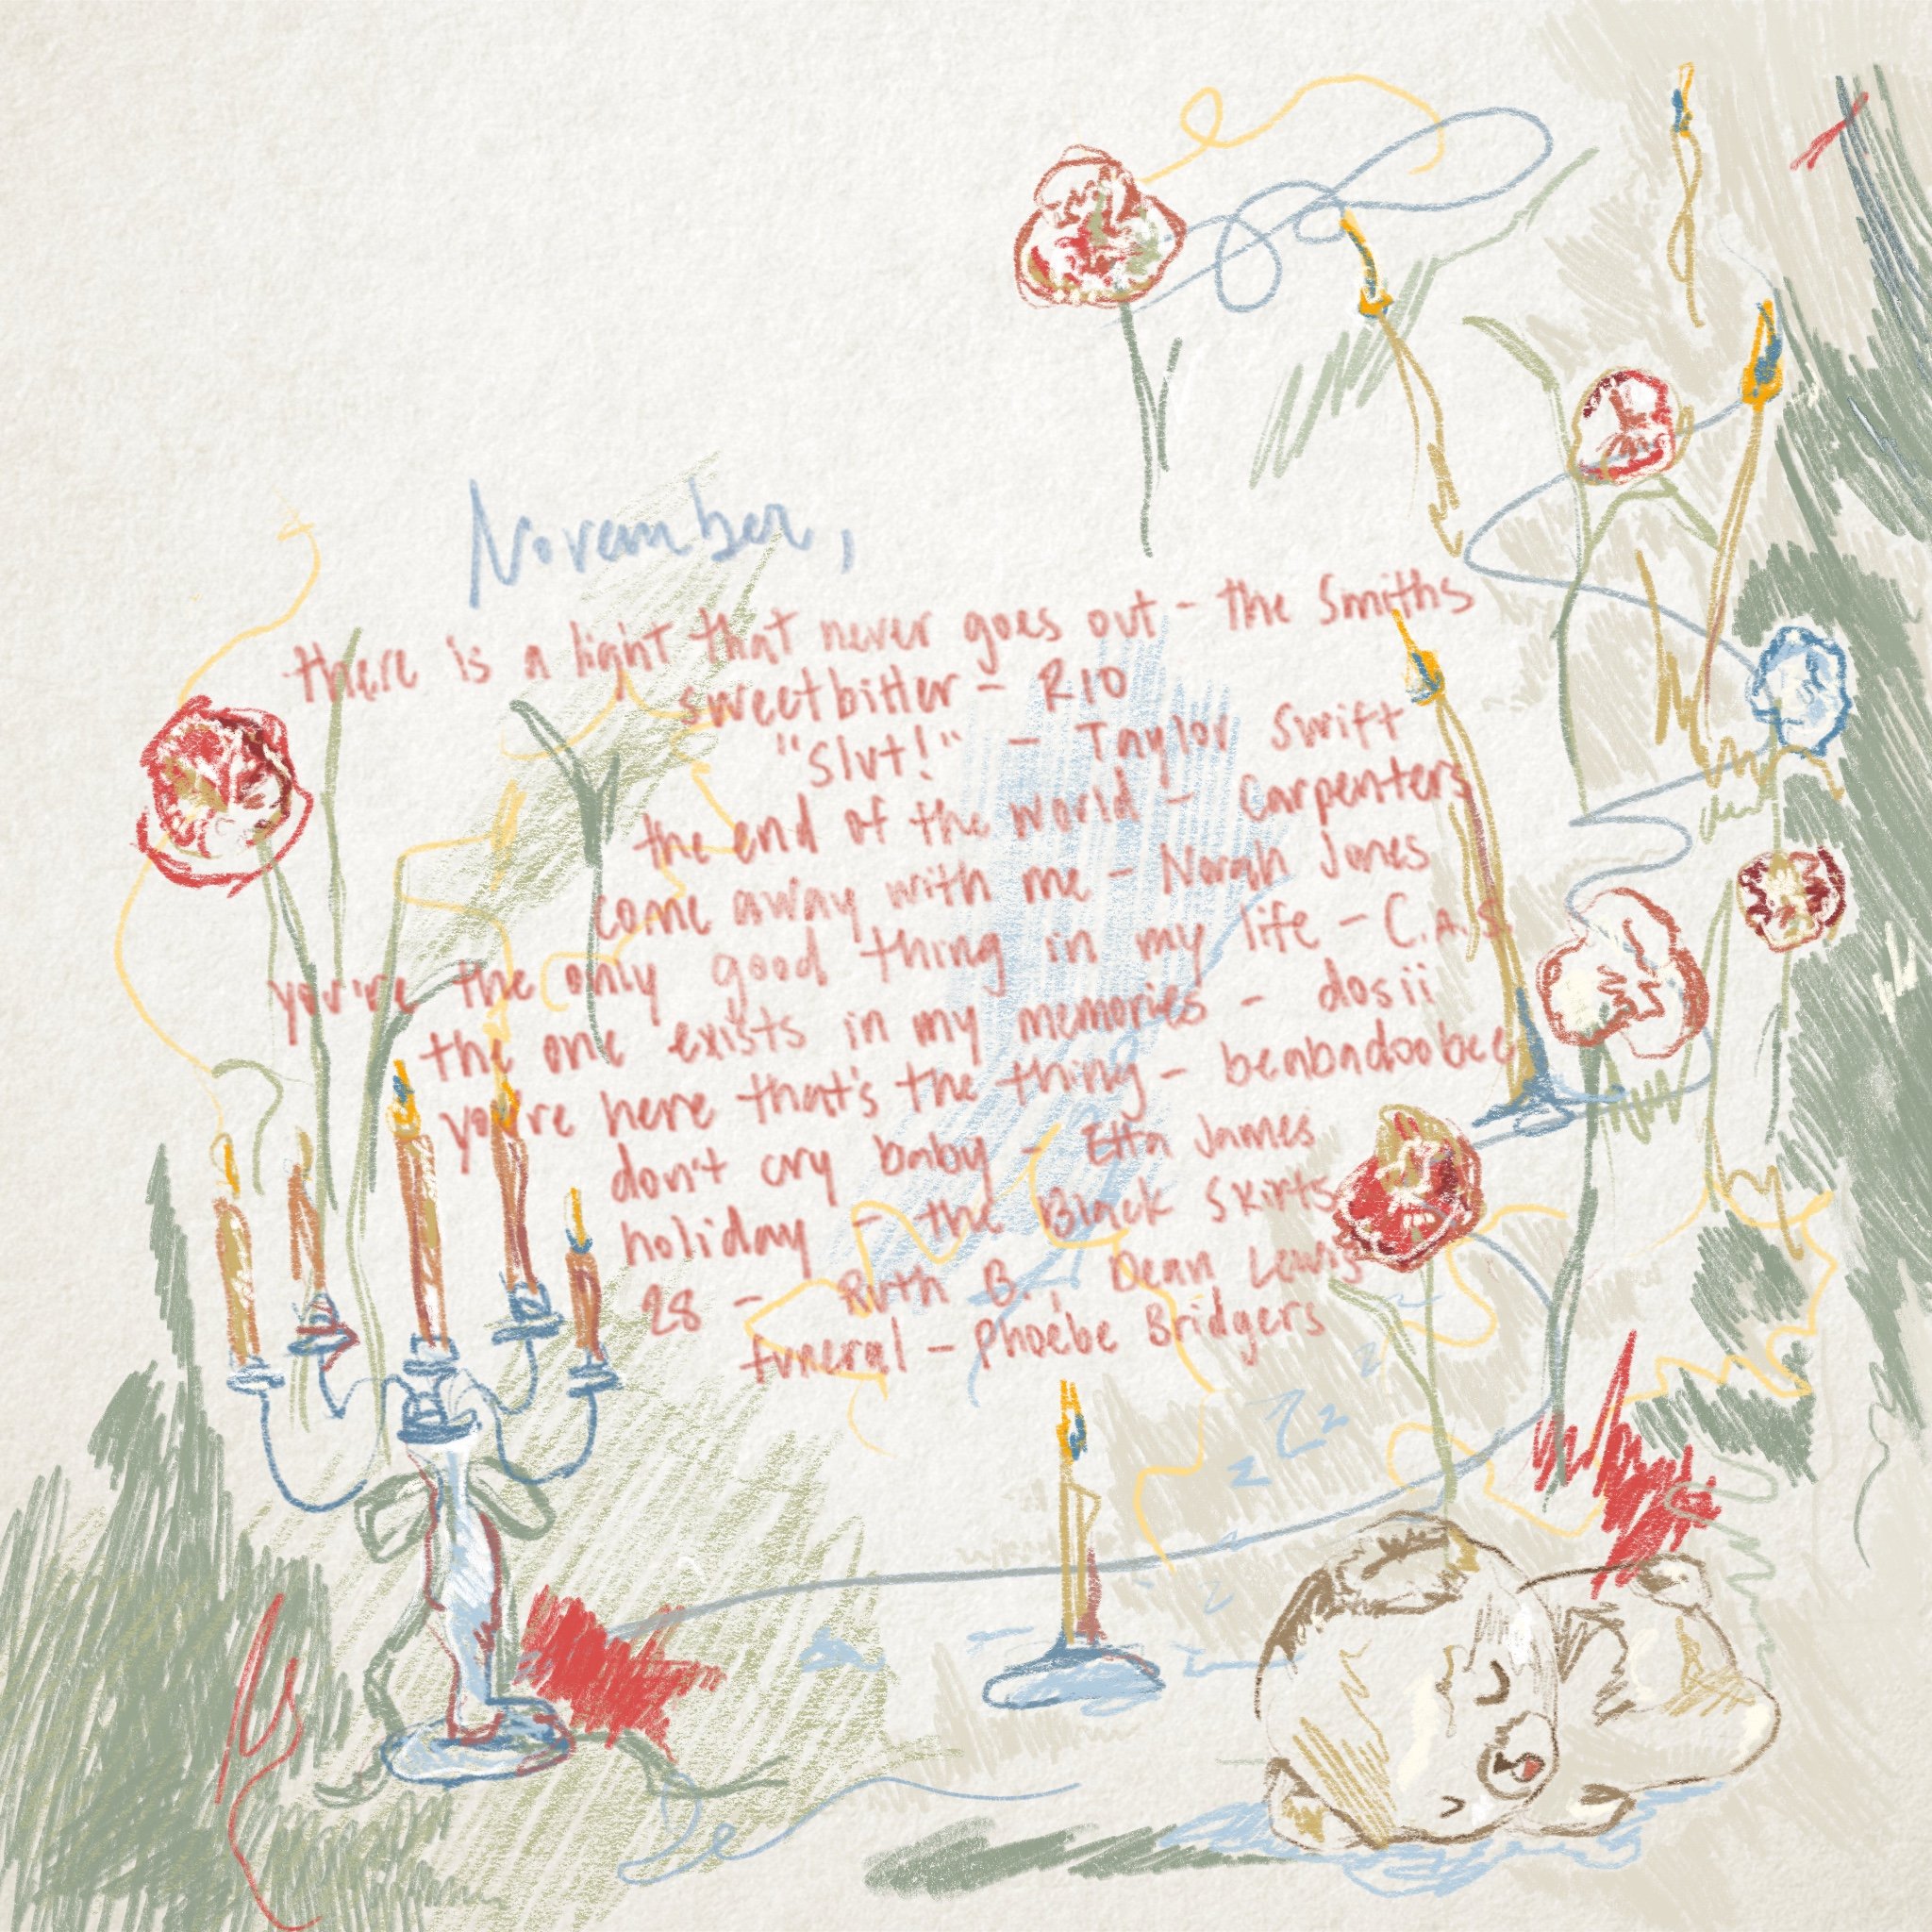 November,
there is a light that never goes out - the Smiths
sweetbitter - RIO
"Slut!" - Taylor Swift
the end of the world - Carpenters
come away with me - Norah Jones
you're the only good thing in my life - C.A.S
the one exists in my memories - dosii
you're here that's the thing - beabadoobee
don't cry baby - Etta James
holiday - the Black Skirts
28 - Ruth B., Dean Lewis
funeral - Phoebe Bridgers
z Z z
z